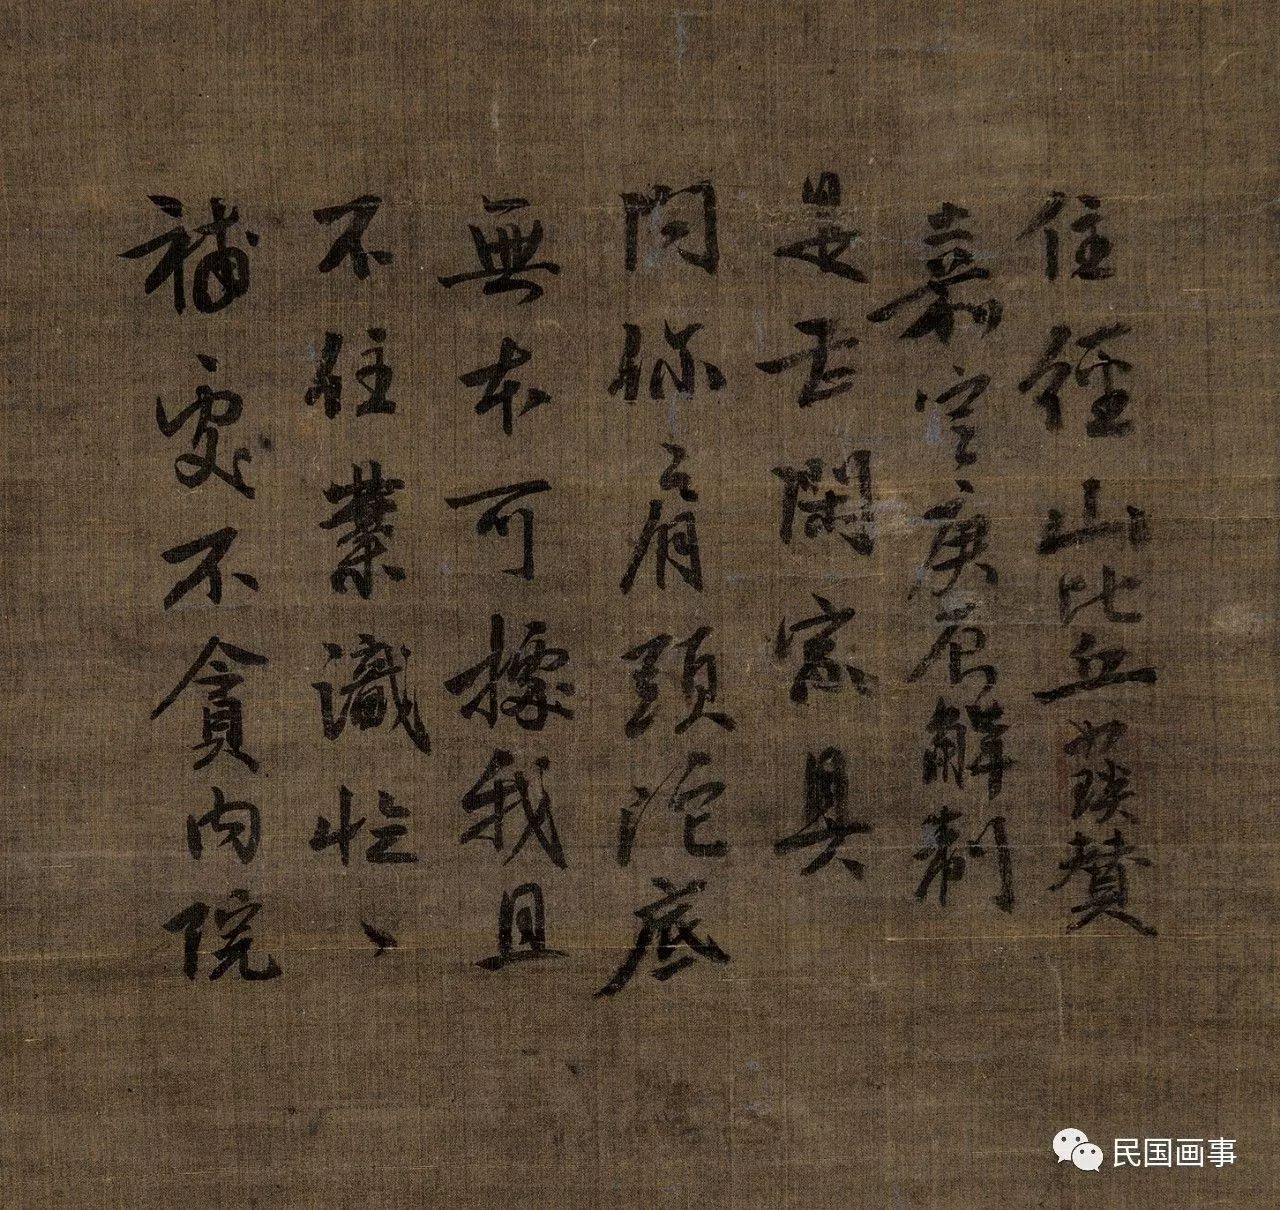 補處不貪內院
不住業識忙〻
無本可據我且
問你肩頭沱底
是甚閑家具
嘉定庚辰解制
住徑山比丘如琰贊
民国画事